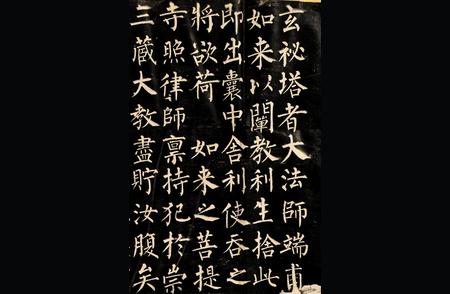 玄祕塔者大法師端甫
如来以闡教利生捨此
即出囊中舍利使吞之
將欲荷 如来之菩提
寺照律師禀持犯於崇
三蔵大教盡貯汝腹矣